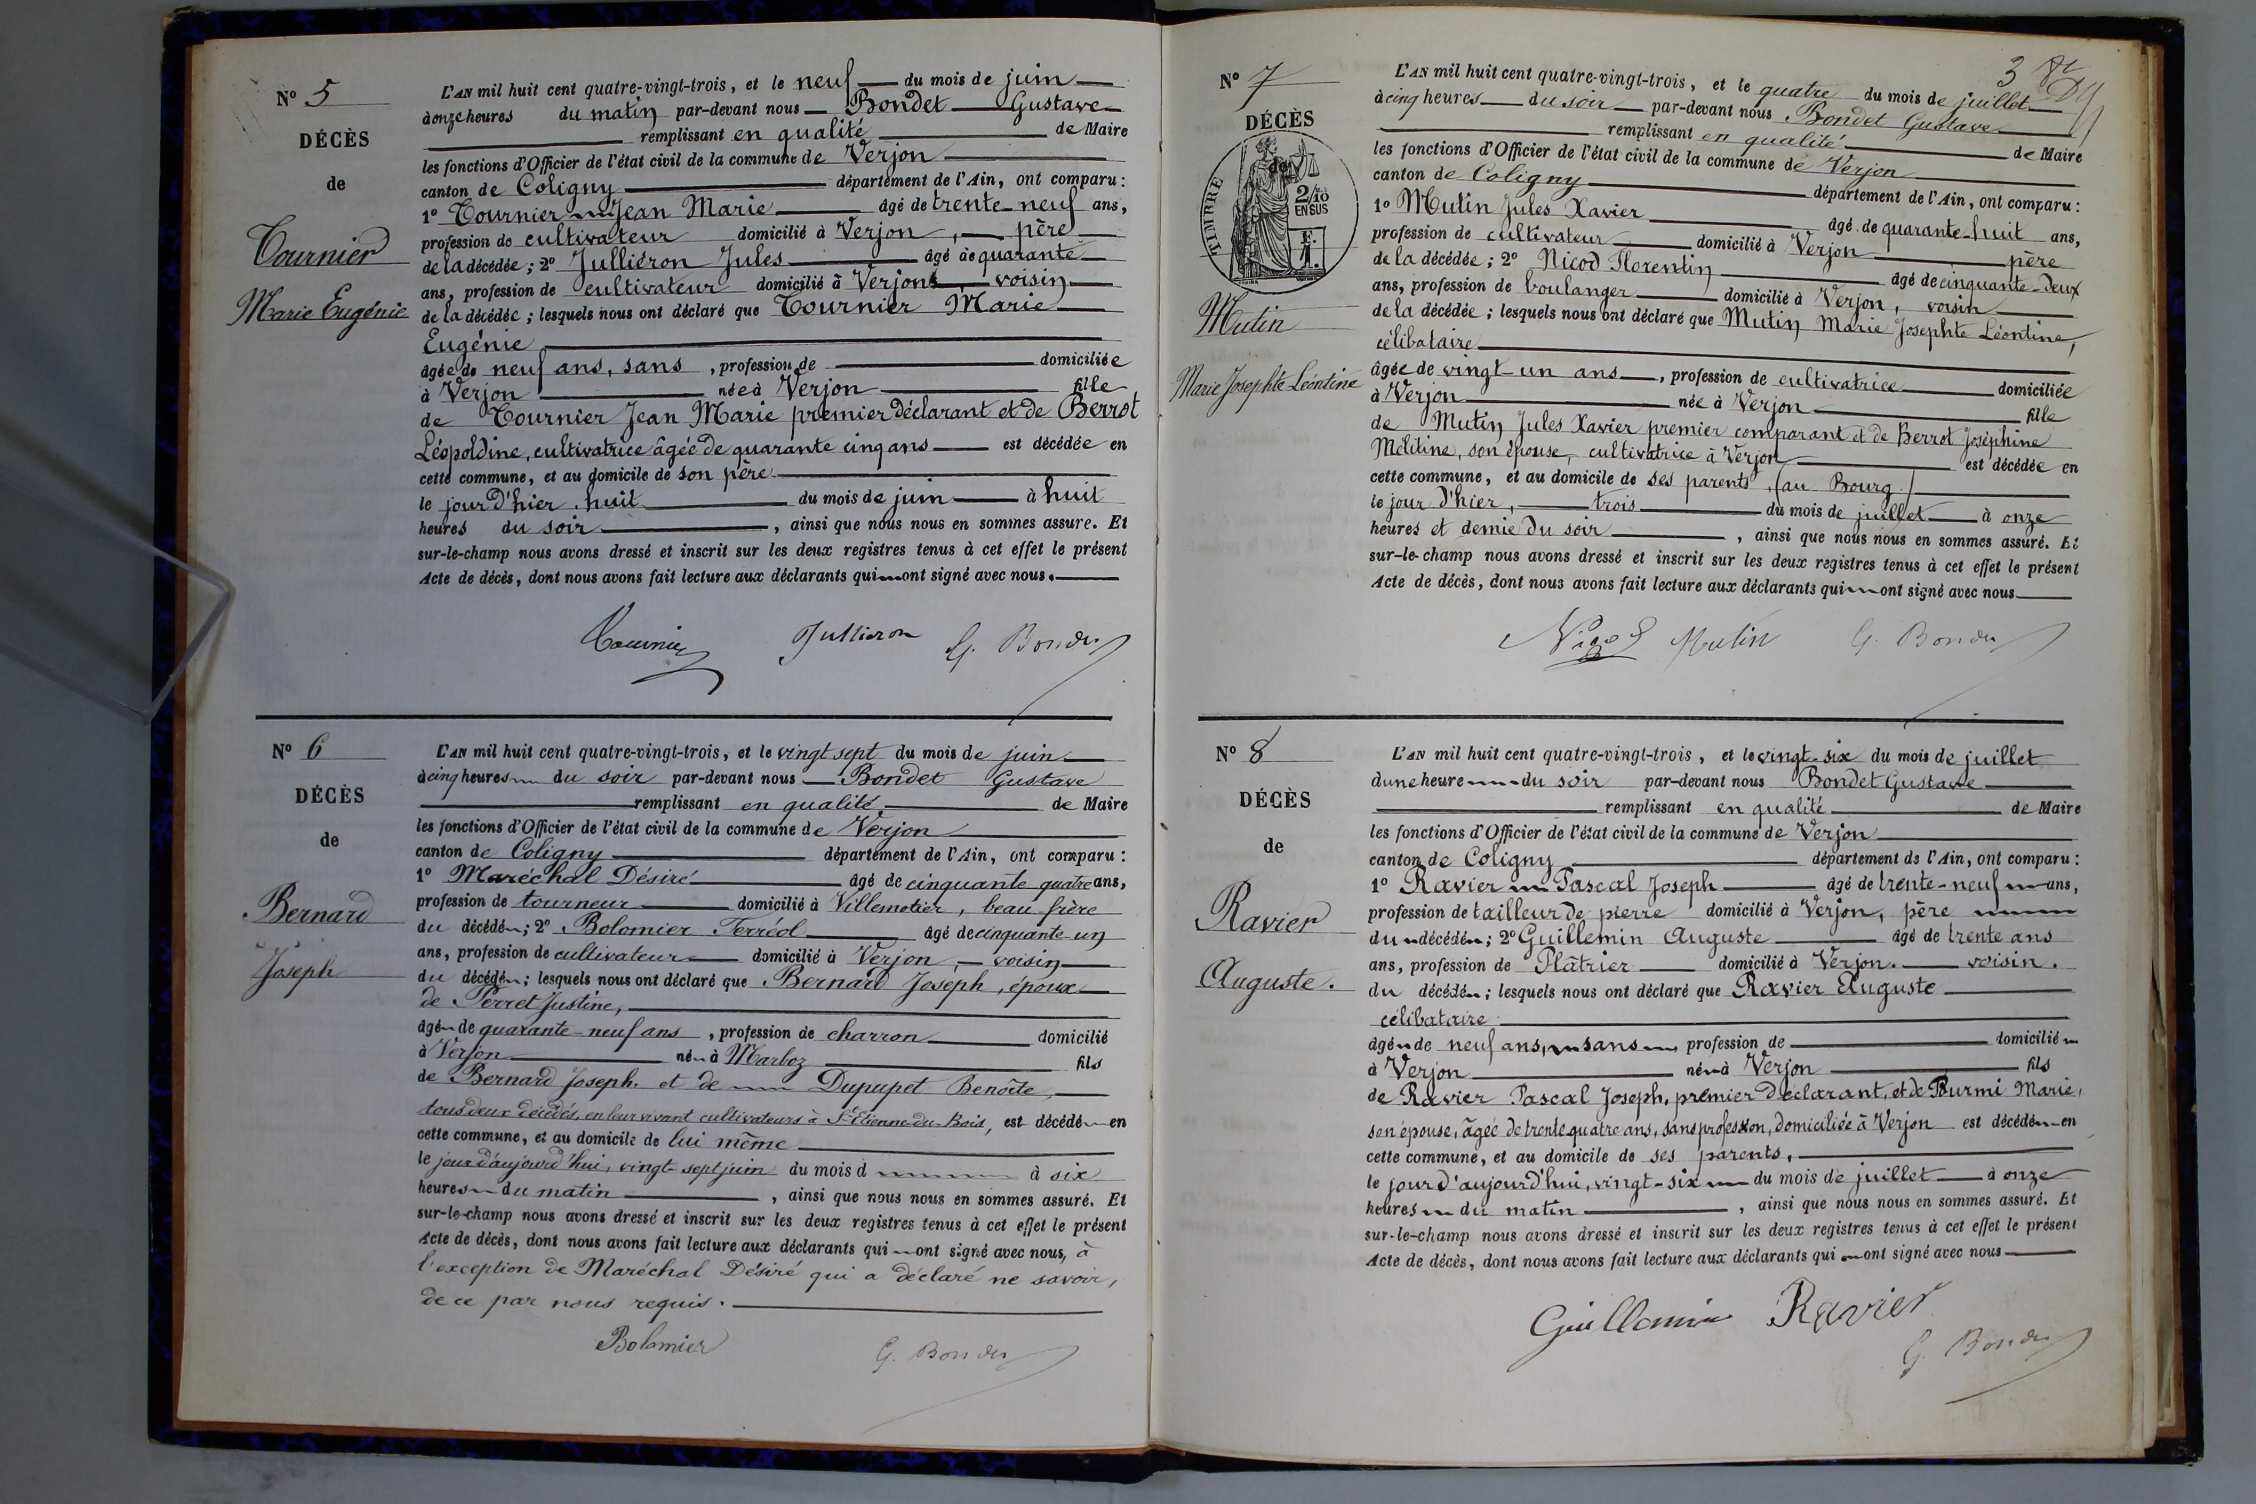 N° 5
DÉCÈS
de
Tournier
Marie Eugénie
L'AN mil huit cent quatre-vingt-trois, et le neuf du mois de juin
à onze heures du matin par-devant nous Bondet Gustave
remplissant en qualité de Maire
les fonctions d'Officier de l'état civil de la commune de Verjon
canton de Coligny département de l'Ain, ont comparu :
1° Tournier Jean Marie âgé de trente-neuf ans,
profession de cultivateur domicilié à Verjon, père
de la décédée ; 2° Julliéron Jules âgé de quarante
ans, profession de cultivateur domicilié à Verjon voisin
de la décédée ; lesquels nous ont déclaré que Tournier Marie
Eugénie
âgée de neuf ans, sans, profession de domiciliée
à Verjon née à Verjon fille
de Tournier Jean Marie premier déclarant et de Berrot
Léopoldine, cultivatrice âgée de quarante cinq ans est décédée en
cette commune, et au domicile de son père
le jour d'hier, huit du mois de juin à huit
heures du soir, ainsi que nous nous en sommes assuré. Et
sur-le-champ nous avons dressé et inscrit sur les deux registres tenus à cet effet le présent
Acte de décès, dont nous avons fait lecture aux déclarants qui ont signé avec nous.
Tournier Jullieron G. Bondet
N° 6
DÉCÈS
de
Bernard
Joseph
L'AN mil huit cent quatre-vingt-trois, et le vingt sept du mois de juin
à cinq heures du soir par-devant nous Bondet Gustave
remplissant en qualité de Maire
les fonctions d'Officier de l'état civil de la commune de Verjon
canton de Coligny département de l'Ain, ont comparu :
1° Maréchal Désiré âgé de cinquante quatre ans,
profession de tourneur domicilié à Villemotier, beau frère
du décédé ; 2° Bolomier Ferréol âgé de cinquante un
ans, profession de cultivateur domicilié à Verjon, voisin
du décédé ; lesquels nous ont déclaré que Bernard Joseph, époux
de Perret Justine,
âgé de quarante-neuf ans, profession de charron domicilié
à Verjon né à Marboz fils
de Bernard Joseph. et de Dupupet Benoîte,
tous deux décédés, en leur vivant cultivateurs à St Etienne du Bois, est décédé en
cette commune, et au domicile de lui même
le jour d'aujourd'hui, vingt sept juin du mois d à six
heures du matin, ainsi que nous nous en sommes assuré. Et
sur-le-champ nous avons dressé et inscrit sur les deux registres tenus à cet effet le présent
Acte de décès, dont nous avons fait lecture aux déclarants qui ont signé avec nous, à
l'exception de Maréchal Désiré qui a déclaré ne savoir,
de ce par nous requis.
Bolomier G. Bondet
3
N° 7
DÉCÈS
de
TIMBRE
2/10
EN SUS
F.
1.
Mutin
Marie Josephte Léontine
L'AN mil huit cent quatre-vingt-trois, et le quatre du mois de juillet
à cinq heures du soir par-devant nous Bondet Gustave
remplissant en qualité de Maire
les fonctions d'Officier de l'état civil de la commune de Verjon
canton de Coligny département de l'Ain, ont comparu :
1° Mutin Jules Xavier âgé de quarante-huit ans,
profession de cultivateur domicilié à Verjon père
de la décédée ; 2° Nicod Florentin âgé de cinquante-deux
ans, profession de boulanger domicilié à Verjon, voisin
de la décédée ; lesquels nous ont déclaré que Mutin Marie Josephte Léontine,
célibataire
âgée de vingt-un ans, profession de cultivatrice domiciliée
à Verjon née à Verjon fille
de Mutin Jules Xavier premier comparant et de Berrot Joséphine
Mélitine, son épouse, cultivatrice à Verjon est décédée en
cette commune, et au domicile de ses parents, (au Bourg)
le jour d'hier, trois du mois de juillet à onze
heures et demie du soir, ainsi que nous nous en sommes assuré. Et
sur-le-champ nous avons dressé et inscrit sur les deux registres tenus à cet effet le présent
Acte de décès, dont nous avons fait lecture aux déclarants qui ont signé avec nous
Nicod Mutin G. Bondet
N° 8
DÉCÈS
de
Ravier
Auguste.
L'AN mil huit cent quatre-vingt-trois, et le vingt-six du mois de juillet
d une heure du soir par-devant nous Bondet Gustave
remplissant en qualité de Maire
les fonctions d'Officier de l'état civil de la commune de Verjon
canton de Coligny département de l'Ain, ont comparu :
1° Ravier Pascal Joseph âgé de trente-neuf ans,
profession de tailleur de pierre domicilié à Verjon, père
du décédé ; 2° Guillemin Auguste âgé de trente ans
ans, profession de Plâtrier domicilié à Verjon. voisin.
du décédé ; lesquels nous ont déclaré que Ravier Auguste
célibataire
âgé de neuf ans, sans, profession de domicilié
à Verjon né à Verjon fils
de Ravier Pascal Joseph, premier déclarant, et de Burmi Marie,
son épouse, âgée de trente quatre ans, sans profession, domiciliée à Verjon est décédé en
cette commune, et au domicile de ses parents,
le jour d'aujourd'hui, vingt-six du mois de juillet à onze
heures du matin, ainsi que nous nous en sommes assuré. Et
sur-le-champ nous avons dressé et inscrit sur les deux registres tenus à cet effet le présent
Acte de décès, dont nous avons fait lecture aux déclarants qui ont signé avec nous
Guillemin Ravier
G. Bondet